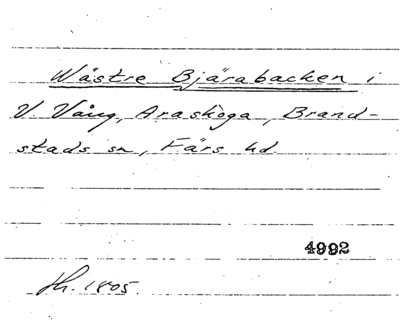 Wästre Bjärabacken i
V. Vång, Araskoga, Brand-
stads sn, Färs hd.
4992
Hh. 1805.